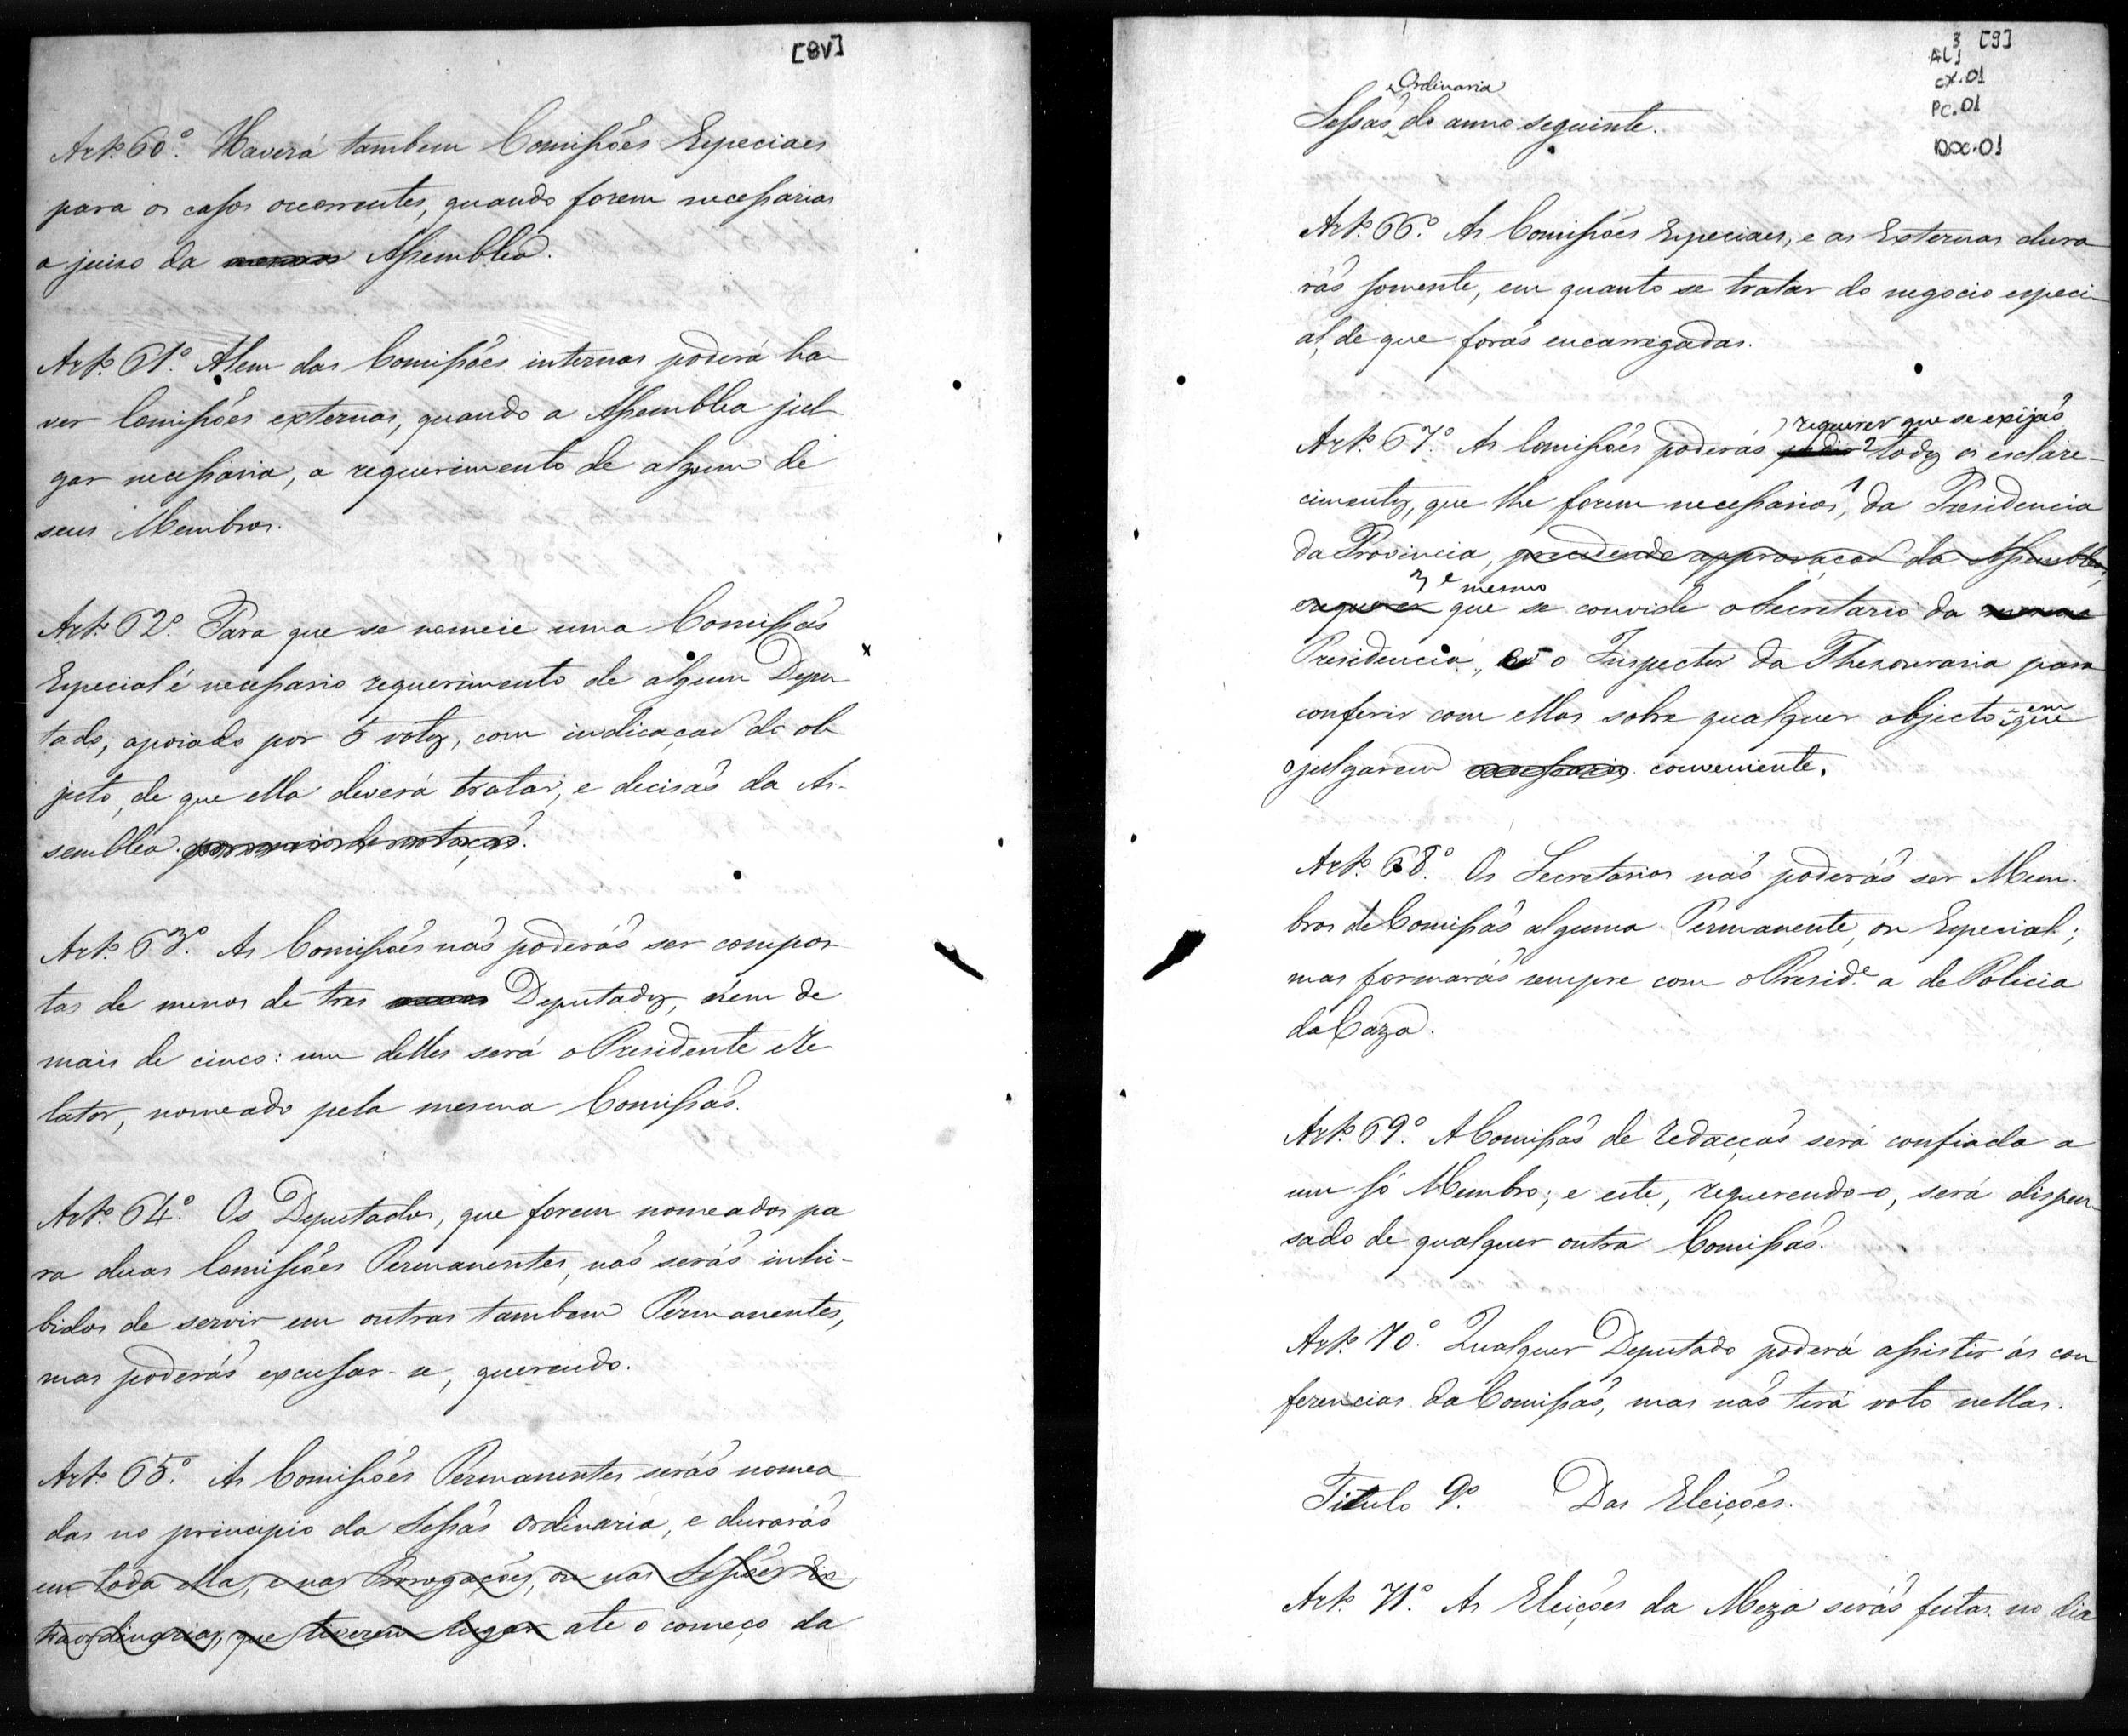 [8V]
Artº 60º. Haverá tambem Comissões Especiaes
para os casos occorrentes, quando forem necessarias
a juiso da Assemblea.
Artº 61º. Alem das Comissões internas poderá ha-
ver Comissões externas, quando a Assemblea jul-
gar necessaria, a requerimento de algum de
seus Membros.
Artº 62º. Para que se nomeie uma Comissaõ
Especial é necessario requerimento de algum Depu
tado, apoiado por 5 votos, com indicaçaõ do ob
jecto, de que ella deverá tratar, e decisaõ da As-
semblea. por meio de votaçaõ.
Artº 63º. As Comissões naõ poderaõ ser compos-
tas de menos de tres Deputados, nem de
mais de cinco: um delles será o Presidente e Re
lator, nomeado pela mesma Comissaõ.
Artº 64º. Os Deputados, que forem nomeados pa
ra duas Comissões Permanentes, naõ seraõ inhi-
bidos de servir em outras tambem Permanentes,
mas poderaõ excusar-se, querendo.
Artº 65º. As Comissões Permanentes seraõ nomea
das no principio da Sessaõ ordinaria, e duraraõ
em toda ella, e nas Prorogações, ou nas Sessões Ex
traordinarias, que tiverem lugar até o começo da
3 [9]
ALJ
cx.01
Pc.01
Doc.01
Ordinaria
Sessaõ do anno seguinte.
Artº 66º. As Comissões Especiaes, e as Externas dura
raõ somente, em quanto se tratar do negocio especi-
al, de que foraõ encarregadas.
requerer que se exijaõ
Artº 67º. As Comissões poderaõ pedir 2 todos os esclare-
cimentos, que lhe forem necessarios, 1 da Presidencia
da Provincia, precedendo approvaçaõ da Assemblea,
3 e mesmo
e requerer que se convide o Secretario da mesma
Presidencia, ou o Inspector da Thesouraria para
conferir com ellas sobre qualquer objecto, em que
o julgarem necessario conveniente.
Artº 68º. Os Secretarios naõ poderaõ ser Mem-
bros de Comissaõ alguma Permanente, ou Especial;
mas formaraõ sempre com o Preside. a de Policia
da Caza.
Artº 69º. A Comissaõ de redacçaõ será confiada a
um só Membro; e este, requerendo-o, será dispen-
sado de qualquer outra Comissaõ.
Artº 70º. Qualquer Deputado poderá assistir ás con
ferencias da Comissaõ, mas naõ terá voto nellas.
Titulo 9º. Das Eleições.
Artº 71º. As Eleições da Meza seraõ feitas no dia